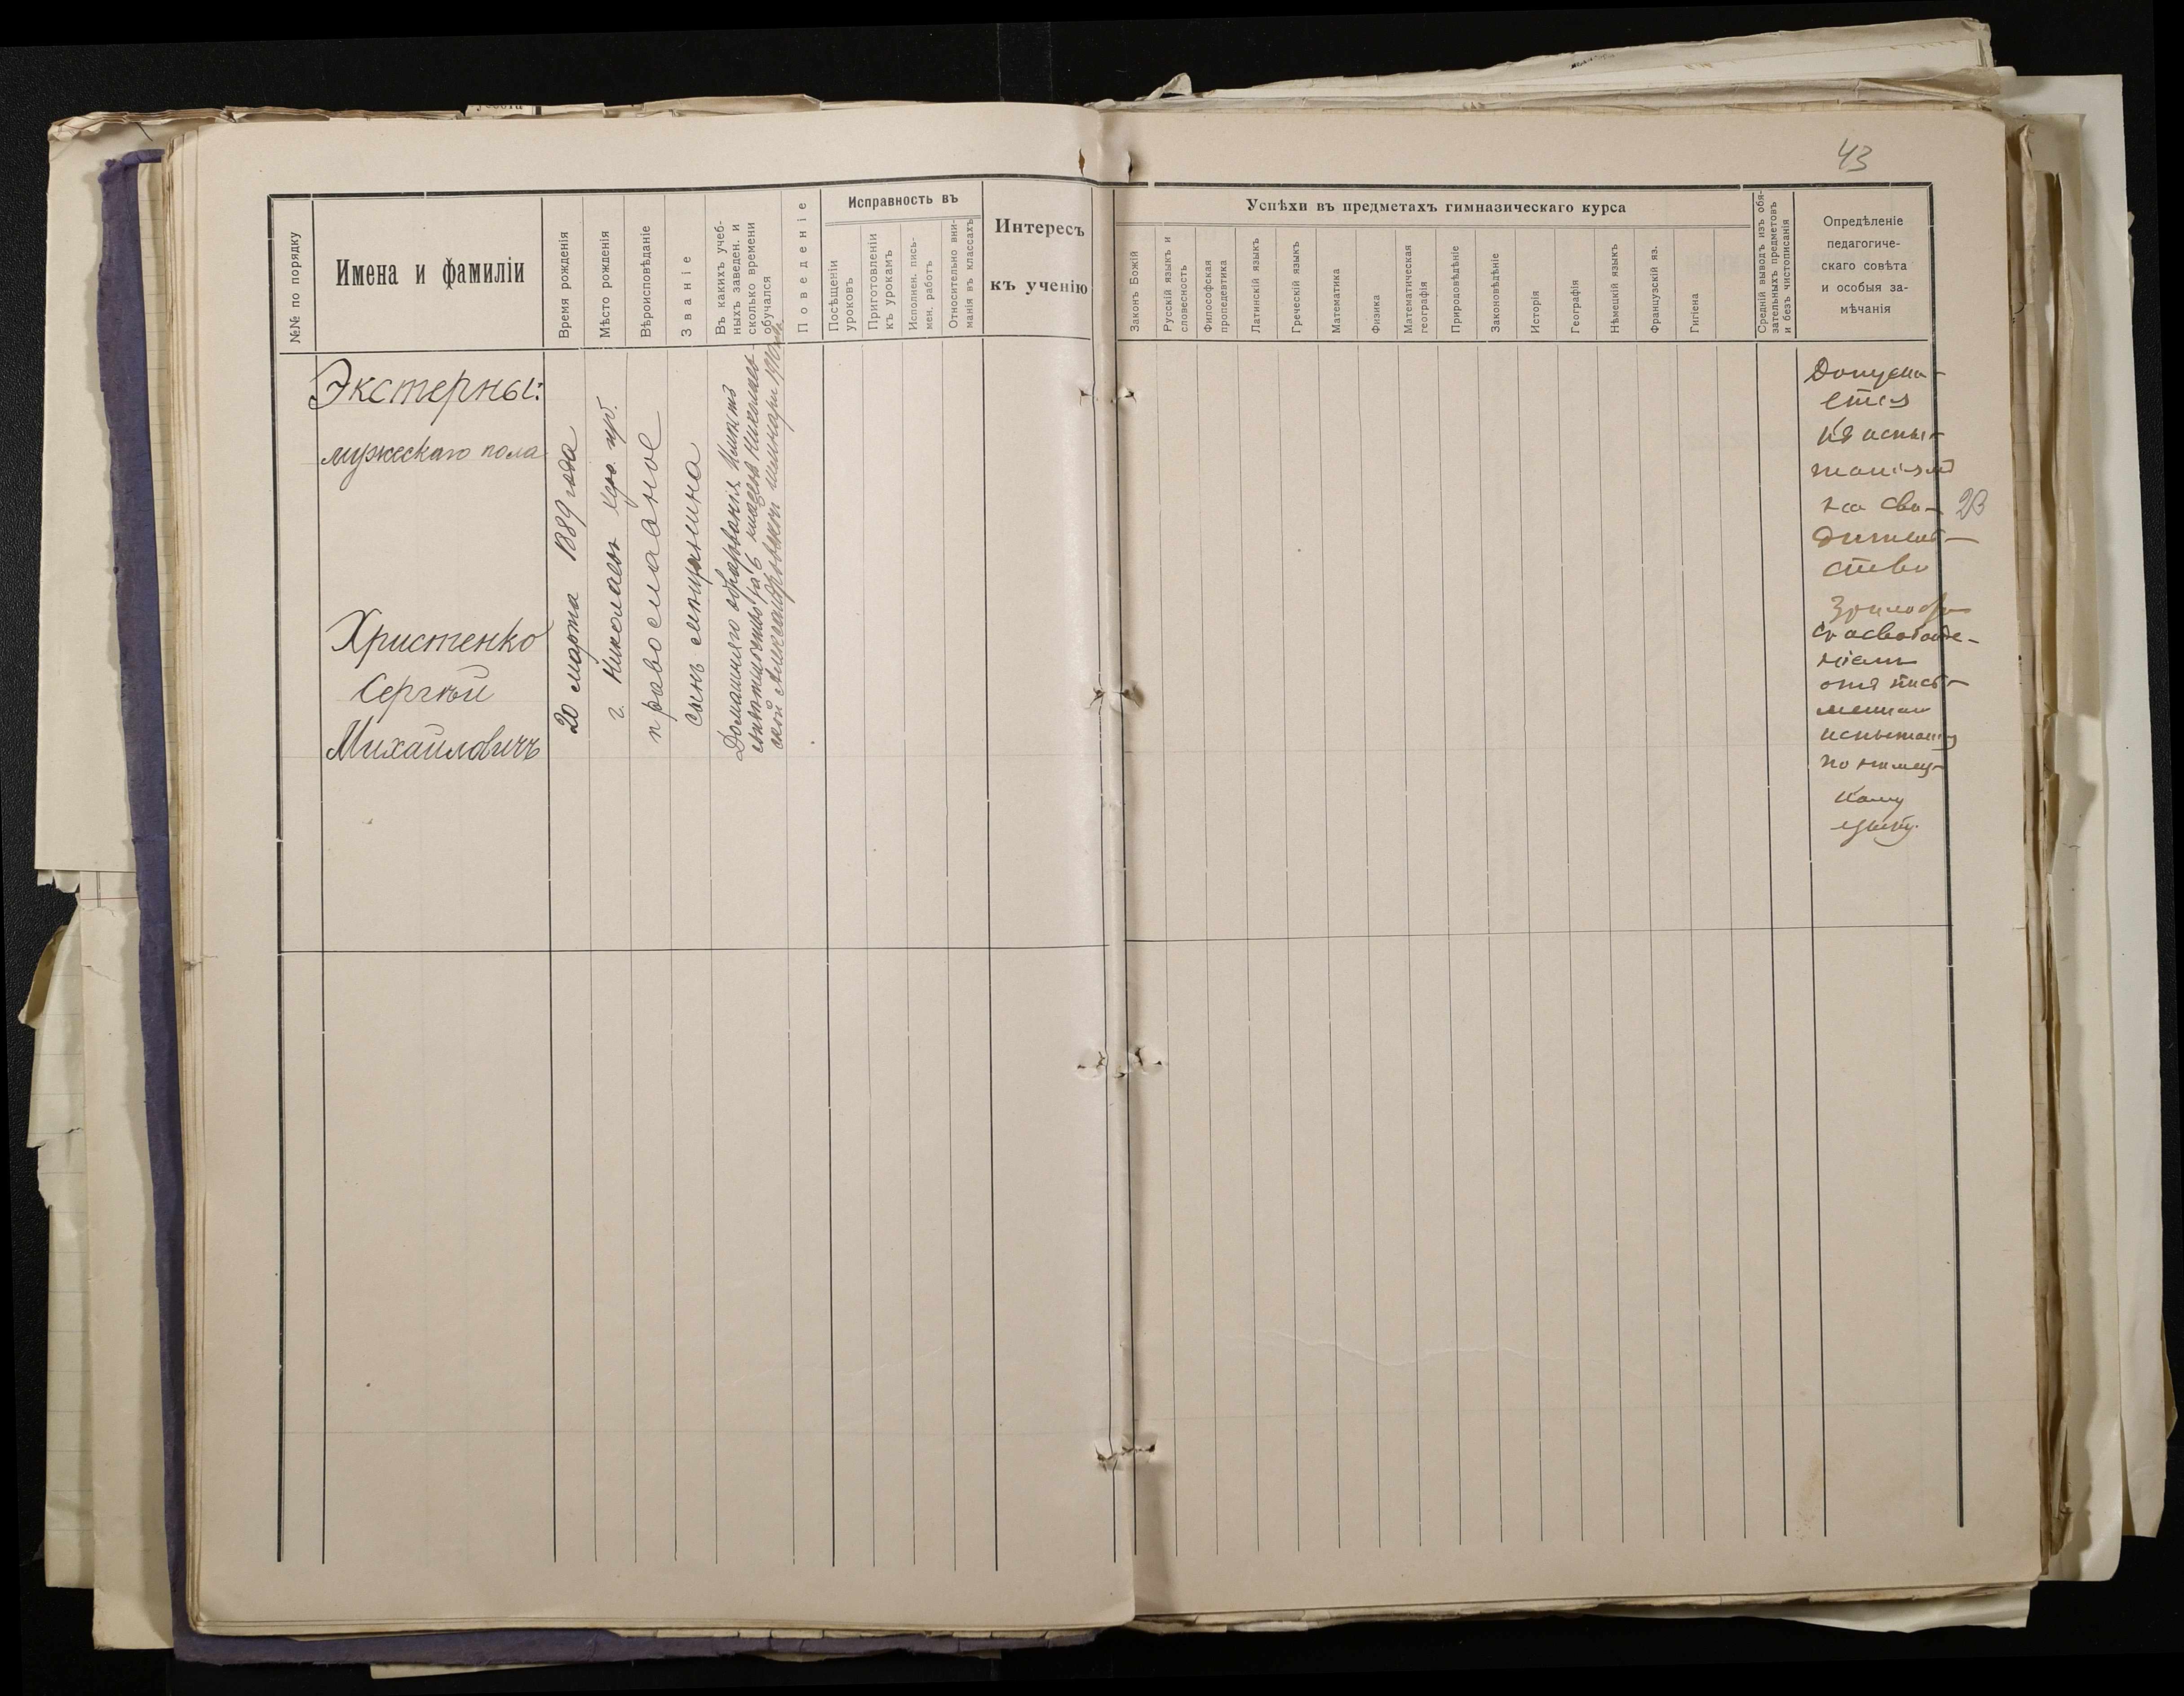 43
№№ по порядку
Имена и фамиліи
Время рожденія
Мѣсто рожденія
Вѣроисповѣданіе
Званіе
Въ какихъ учеб-
ныхъ заведен. и
сколько времени
обучался
Поведеніе
Исправность въ
Посѣщеніи
уроковъ
Приготовленіи
къ урокамъ
Исполнен. пись-
мен. работъ
Относительно вни-
манія въ классахъ
Интересъ
къ ученію
Успѣхи въ предметахъ гимназическаго курса
Законъ Божій
Русскій языкъ и
словесность
Философская
пропедевтика
Латинскій языкъ
Греческій языкъ
Математика
Физика
Математическая
географія
Природовѣдѣніе
Законовѣдѣніе
Исторія
Географія
Нѣмецкій языкъ
Французскій яз.
Гигіена
Средній выводъ изъ обя-
зательныхъ предметовъ
и безъ чистописанія
Опредѣленіе
педагогиче-
скаго совѣта
и особыя за-
мѣчанія
Экстерны:
мужескаго пола
Христенко
Сергѣй
Михайловичъ
20 марта 1889 года
г. Николаевъ Хер. губ.
православное
сынъ мѣщанина
Домашняго образованія. Имѣетъ
свидѣтельство за 6 классовъ Николаев-
ской Александровской
Допуска-
ется
къ испы-
таніямъ
на сви-
дѣтель-
ство
зрѣлости
съ освобожде-
ніемъ
отъ пись-
менныхъ
испытаній
по нѣмец-
кому
языку.
23